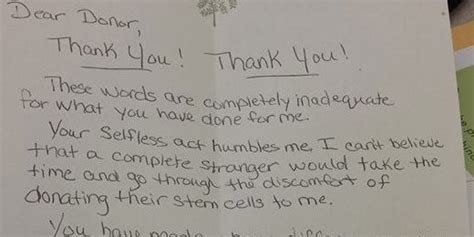 Dear Donor,
Thank You! Thank You!
These words are completely inadequate
for what you have done for me.
Your Selfless act humbles me. I can't believe
that a complete stranger would take the
time and go through the discomfort of
donating their stem cells to me.
You have